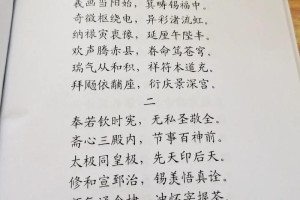 羲画当阳始，箕畴锡福中。
奇微枢绕电，异彩渚流虹。
纳禄寅衷豫，延厘午陛丰。
欢声腾赤县，春命笃苍穹。
瑞气从和积，祥符本道充。
拜飏依黼座，衍庆景深宫。
二
奉若钦时宪，无私圣敬全。
斋心三殿内，节事百神前。
太极同皇极，先天印后天。
修和宣郅治，锡羡悟真诠。